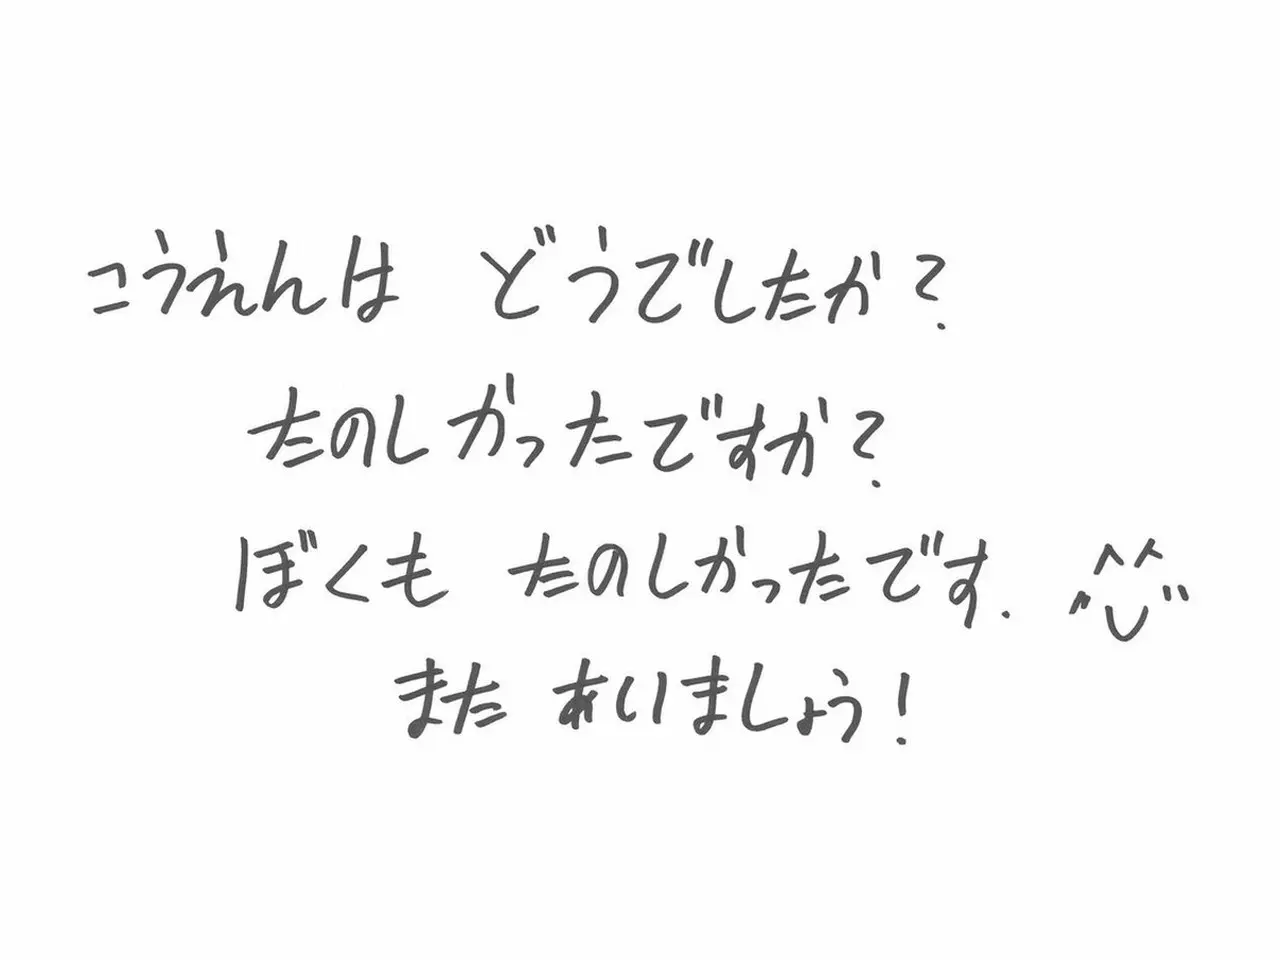 こうえんは どうでしたか?
たのしかったですか?
ぼくも たのしかったです.
また あいましょう!